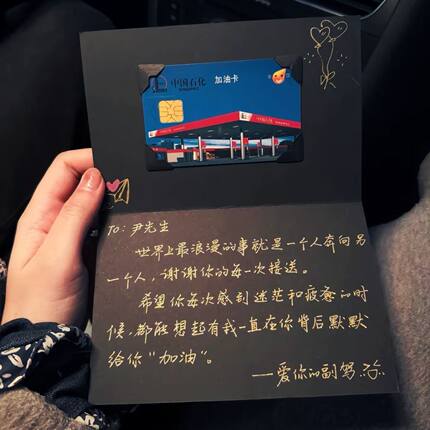 中国石化
SINOPEC
加油卡
To: 尹先生
世界上最浪漫的事就是一个人奔向另
一个人，谢谢你的每一次接送。
希望你每次感到迷茫和疲惫的时
候，都能想起有我一直在你背后默默
给你“加油”。
——爱你的副驾